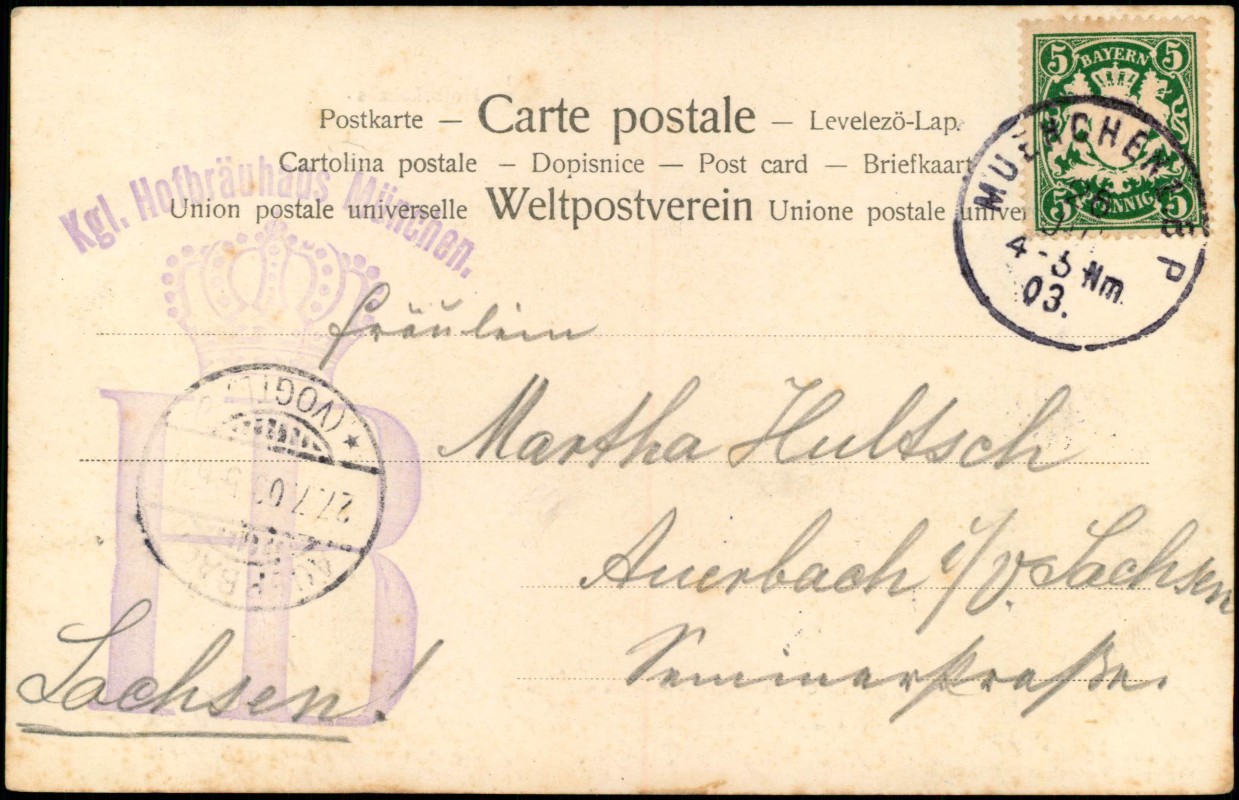 Postkarte — Carte postale — Levelezö-Lap.
Cartolina postale — Dopisnice — Post card — Briefkaart
Union postale universelle Weltpostverein Unione postale univer
5 BAYERN 5
5 PFENNIG 5
MUENCHEN B P
26
4-5 Nm
03.
Kgl. Hofbräuhaus München.
HB
(VOGTL)
27.7.03
AUERBA
Fräulein
Martha Hultsch
Auerbach i/V. Sachsen
Seminarstraße.
Sachsen!